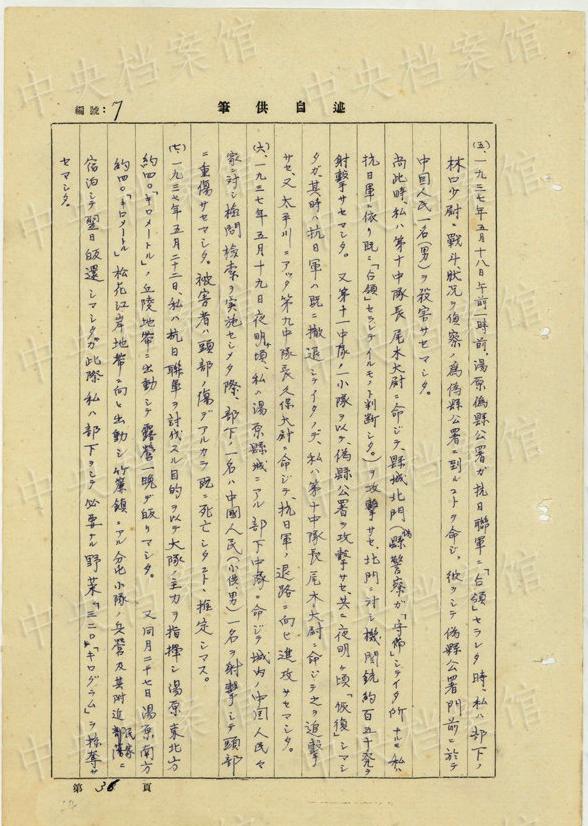 中央档案馆
述自供筆
編號：7
(五)、一九三七年五月十八日午前一時前、湯原偽縣公署ガ抗日聯軍ニ「占領」セラレタ時、私ハ部下ノ
林口少尉ニ戰斗狀况ヲ偵察ノ爲偽縣公署ニ到ルコトヲ命ジ、彼ヲシテ偽縣公署門前ニ於テ
中国人民一名(男)ヲ殺害サセマシタ。
尚此時、私ハ第十中隊長尾木大尉ニ命ジテ、縣城北門(偽縣警察ガ守備シテイタ所ナルモ私ハ
抗日軍ニ依リ既ニ「占領」セラレテイルモノト判断シタ。)ヲ攻擊サセ、北門ニ対シ機関銃約百五十発ヲ
射擊サセマシタ。又第十一中隊ノ一小隊ヲ以テ、偽縣公署ヲ攻擊サセ、共ニ夜明ケ頃「恢復」シマシ
タガ、其時ハ抗日軍ハ既ニ撤退シテイタノデ、私ハ第十中隊長尾木大尉ニ命ジテ之ヲ追擊
サセ、又太平川ニアッタ第九中隊長久保大尉ニ命ジテ、抗日軍ノ退路ニ向ヒ進攻サセマシタ。
(六)、一九三七年五月十九日夜明ケ頃、私ハ湯原縣城ニアル部下中隊ニ命ジテ城内ノ中国人民々
家ニ対シ檢問檢索ヲ実施セシメタ際、部下ノ一名ハ中国人民(小供、男)一名ヲ射擊シテ頭部
ニ重傷サセマシタ。被害者ハ頭部ノ傷デアルカラ既ニ死亡シタコト、推定シマス。
(七)、一九三七年五月二十二日、私ハ抗日聯軍ヲ討伐スル目的ヲ以テ大隊ノ主力ヲ指揮シ湯原東北方
約四〇「キロメートル」ノ丘陵地帶ニ出動シテ露營一晚デ皈リマシタ。又同月二十七日湯原南方
約四〇「キロメートル」松花江岸地帶ニ向ヒ出動シ竹簾鎮ニアル分屯小隊ノ兵營及其附近部落ニ民家ニ
宿泊シテ翌日皈還シマシタガ此際私ハ部下ヲシテ必要ナル野菜「三二〇「キログラム」ヲ掠奪サ
セマシタ。
第36頁